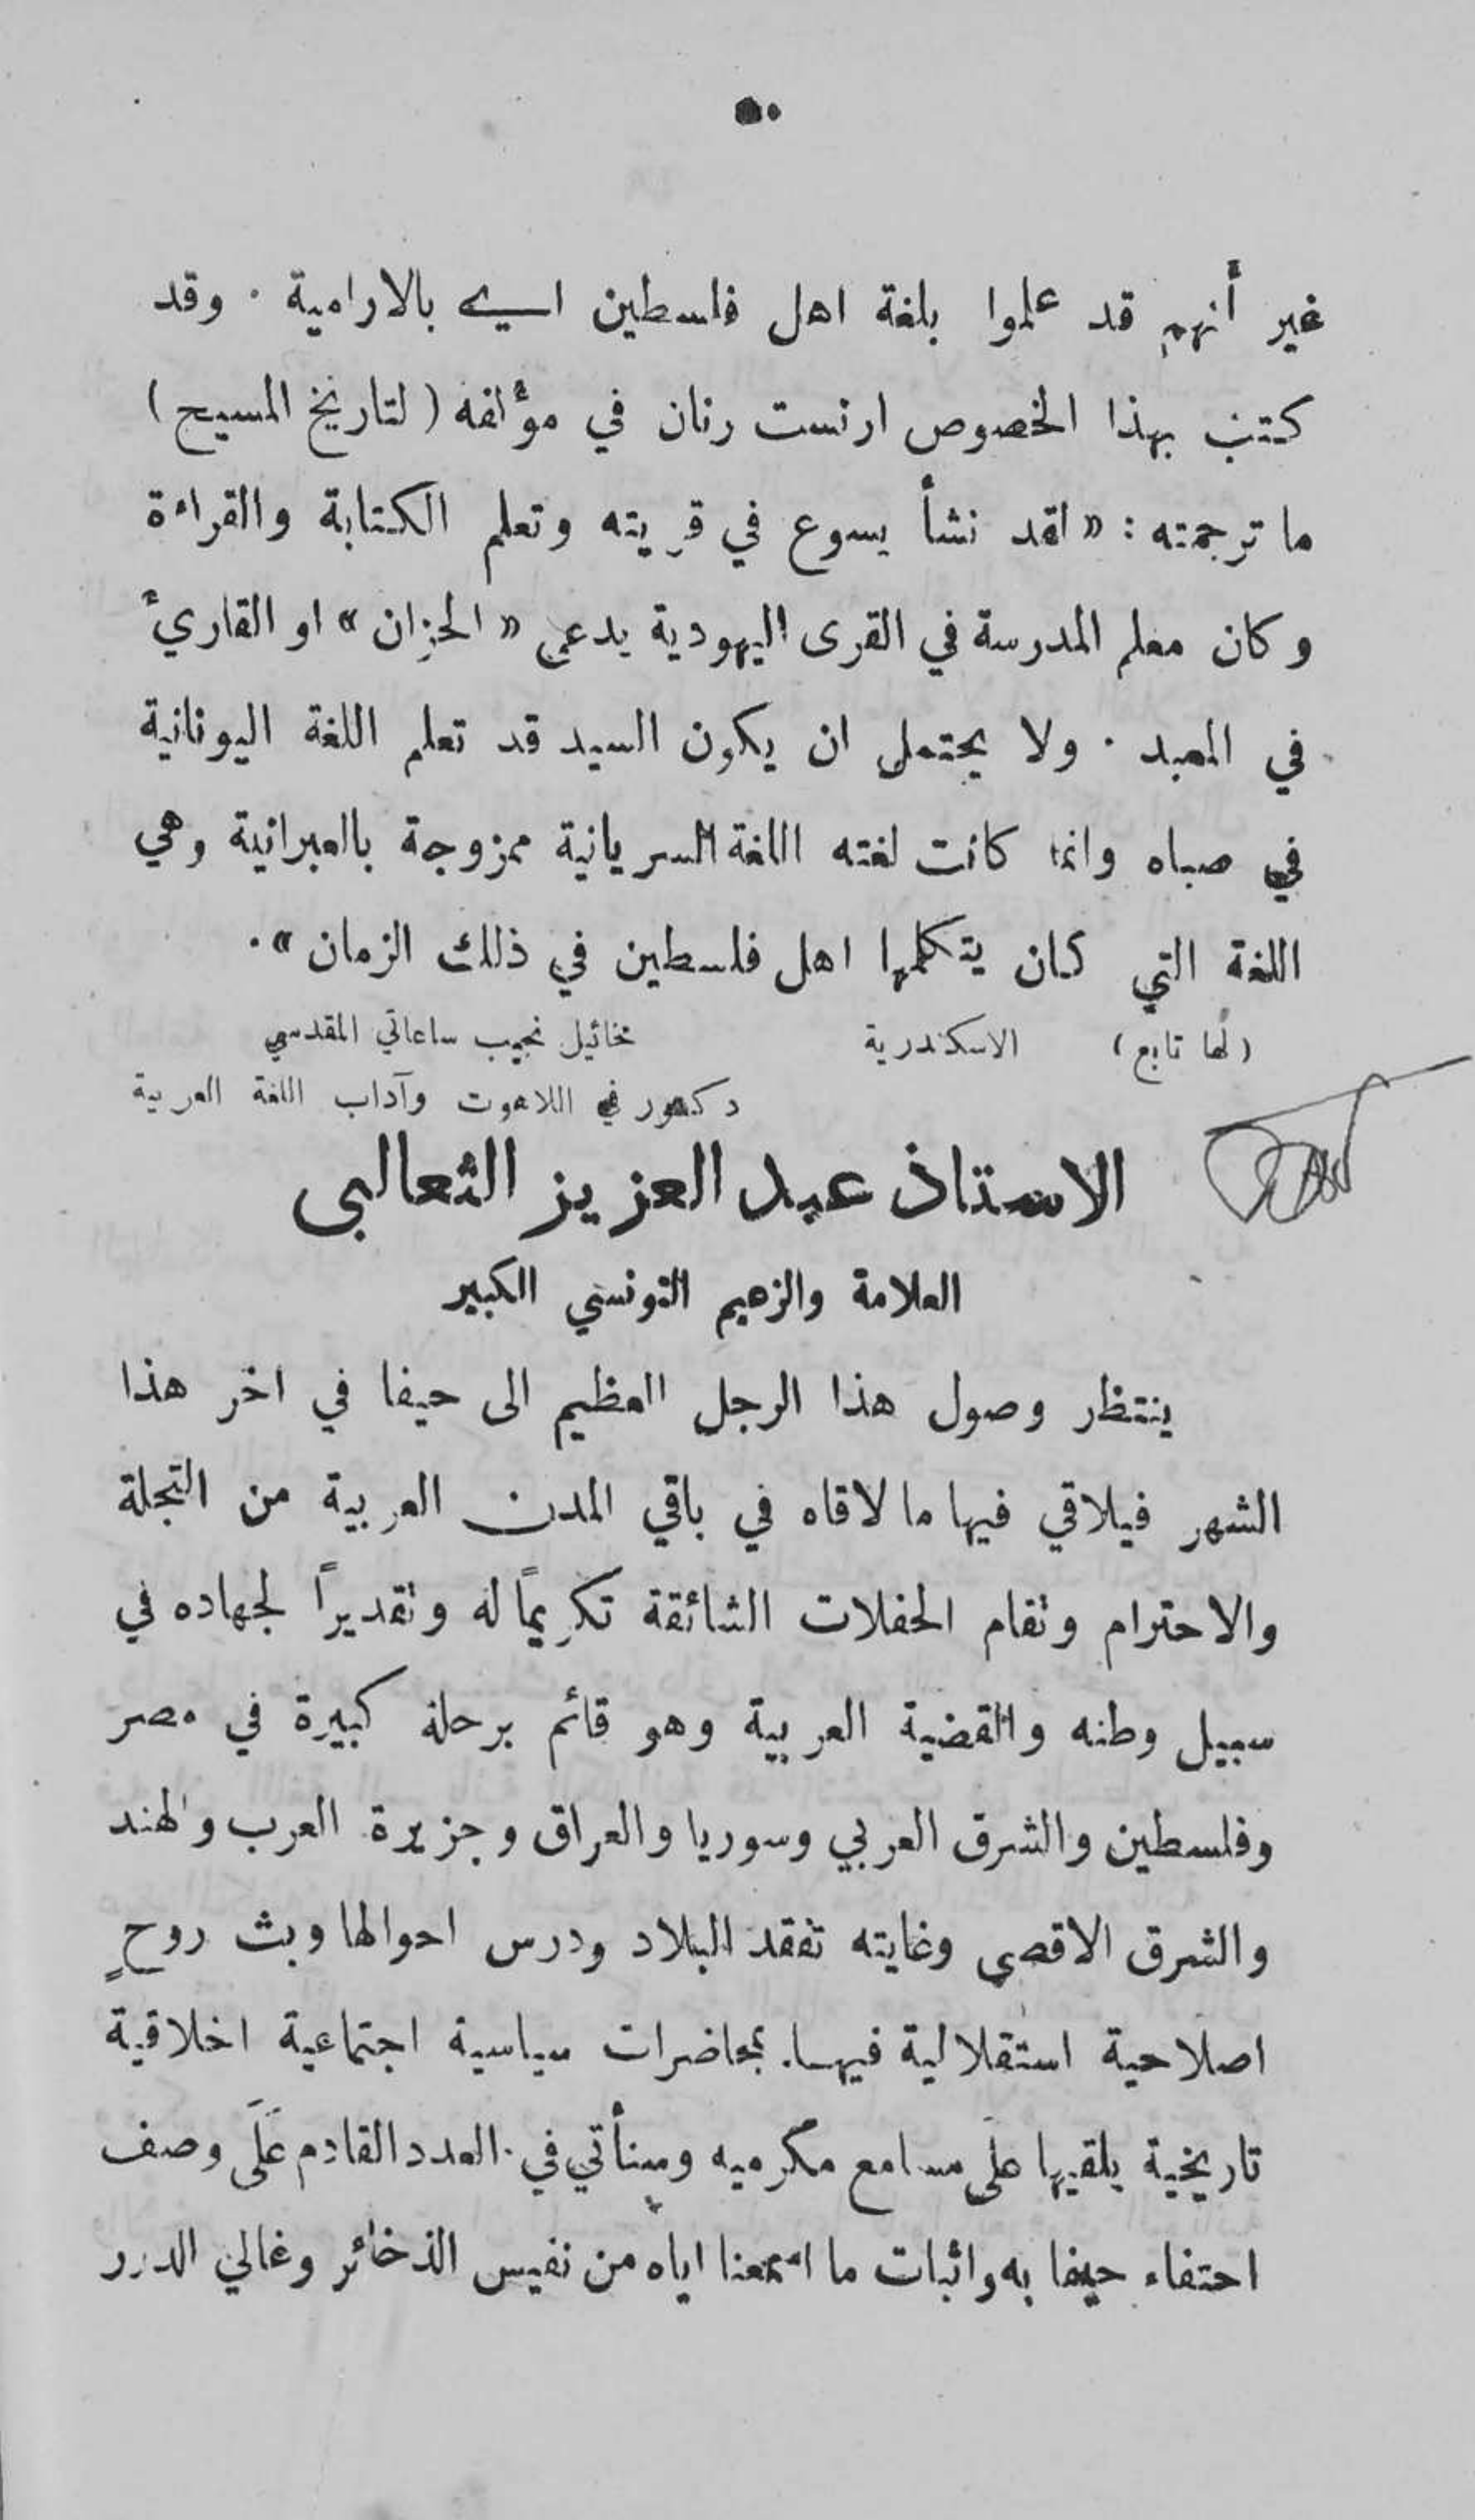 ٥٠
غير أنهم قد علموا بلغة اهل فلسطين اي بالارامية . وقد
كتب بهذا الخصوص ارنست رنان في مؤلفه ( لتاريخ المسيح )
ما ترجمته : « لقد نشأ يسوع في قريته وتعلم الكتابة والقراءة
وكان معلم المدرسة في القرى اليهودية يدعى « الحزان » او القارئ
في المعبد . ولا يحتمل ان يكون السيد قد تعلم اللغة اليونانية
في صباه وانما كانت لغته اللغة السريانية ممزوجة بالعبرانية وهي
اللغة التي كان يتكلمها اهل فلسطين في ذلك الزمان » .
( لها تابع ) الاسكندرية مخائيل نجيب ساعاتي المقدسي
دكتور في اللاهوت وآداب اللغة العربية
الاستاذ عبد العزيز الثعالبي
العلامة والزعيم التونسي الكبير
ينتظر وصول هذا الرجل العظيم الى حيفا في اخر هذا
الشهر فيلاقي فيها ما لاقاه في باقي المدن العربية من التجلة
والاحترام وتقام الحفلات الشائقة تكريمًا له وتقديرًا لجهاده في
سبيل وطنه والقضية العربية وهو قائم برحلة كبيرة في مصر
وفلسطين والشرق العربي وسوريا والعراق وجزيرة العرب والهند
والشرق الاقصى وغايته تفقد البلاد ودرس احوالها وبث روحٍ
اصلاحية استقلالية فيها. بمحاضرات سياسية اجتماعية اخلاقية
تاريخية يلقيها على مسامع مكرميه وسنأتي في العدد القادم عَلَى وصف
احتفاء حيفا به واثبات ما اسمعنا اياه من نفيس الذخائر وغالي الدرر